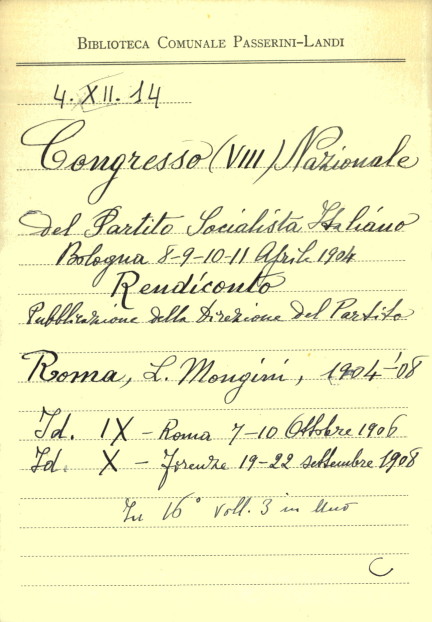 BIBLIOTECA COMUNALE PASSERINI-LANDI
4. XII. 14
Congresso (VIII) Nazionale
del Partito Socialista Italiano
Bologna 8-9-10-11 Aprile 1904
Rendiconto
Pubblicazione della Direzione del Partito
Roma, L. Mongini, 1904-'08
Id. IX - Roma 7-10 Ottobre 1906
Id. X - Firenze 19-22 settembre 1908
In 16° voll. 3 in uno
C